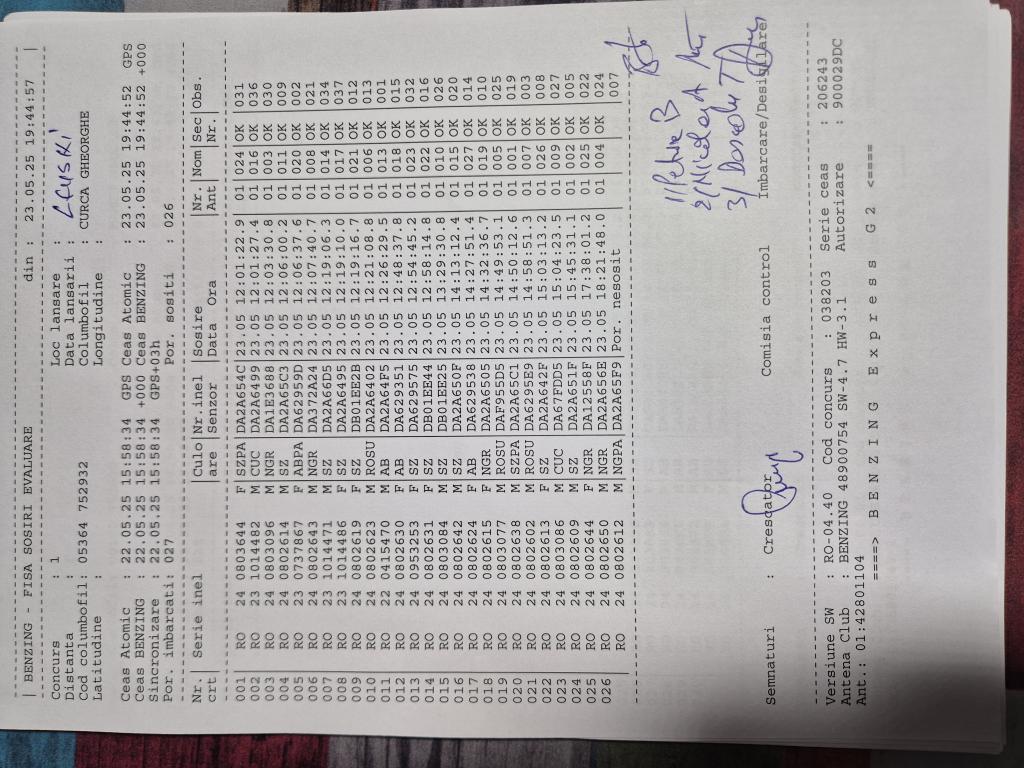 | BENZING - FISA SOSIRI EVALUARE din : 23.05.25 19:44:57 |
Concurs : 1 Loc lansare : LEUSKI
Distant : Data lansarii :
Cod columbofil: 05364 752932 Columbofil : CURCA GHEORGHE
Latitudine : Longitudine :
Ceas Atomic : 22.05.25 15:58:34 GPS Ceas Atomic : 23.05.25 19:44:52 GPS
Ceas BENZING : 22.05.25 15:58:34 +000 Ceas BENZING : 23.05.25 19:44:52 +000
Sincronizare : 22.05.25 15:58:34 GPS+03h
Por. imbarcati: 027 Por. sositi : 026
Nr. | Serie inel |Culo|Nr.inel |Sosire |Nr.|Nom|Sec|Obs.
crt |are |Senzor |Data Ora |Ant| |Nr.|
001 | RO 24 0803644 F |SZPA|DA2A654C|23.05 12:01:22.9 |01 |024|OK |031
002 | RO 23 1014482 M |CUC |DA2A6499|23.05 12:01:27.4 |01 |016|OK |036
003 | RO 24 0803096 M |NGR |DA1E3688|23.05 12:03:30.8 |01 |003|OK |030
004 | RO 24 0802614 M |SZ |DA2A65C3|23.05 12:06:00.2 |01 |011|OK |009
005 | RO 23 0737867 F |ABPA|DA62959D|23.05 12:06:37.6 |01 |020|OK |002
006 | RO 24 0802643 M |NGR |DA372A24|23.05 12:07:40.7 |01 |008|OK |021
007 | RO 23 1014471 M |SZ |DA2A66D5|23.05 12:19:06.3 |01 |014|OK |034
008 | RO 23 1014486 F |SZ |DA2A6495|23.05 12:19:10.0 |01 |017|OK |037
009 | RO 24 0802619 F |SZ |DB01EE2B|23.05 12:19:16.7 |01 |021|OK |012
010 | RO 24 0802623 M |ROSU|DA2A6402|23.05 12:21:08.8 |01 |006|OK |013
011 | RO 22 0415470 M |AB |DA2A64F5|23.05 12:26:29.5 |01 |013|OK |001
012 | RO 24 0802630 F |AB |DA629351|23.05 12:48:37.8 |01 |018|OK |015
013 | RO 24 0953253 F |SZ |DA629575|23.05 12:54:45.2 |01 |023|OK |032
014 | RO 24 0802631 F |SZ |DB01EE44|23.05 12:58:14.8 |01 |022|OK |016
015 | RO 24 0803084 M |SZ |DB01EE25|23.05 13:29:30.8 |01 |010|OK |026
016 | RO 24 0802642 M |SZ |DA2A650F|23.05 14:13:12.4 |01 |015|OK |020
017 | RO 22 0802624 F |AB |DA629538|23.05 14:27:51.4 |01 |027|OK |014
018 | RO 24 0802615 F |NGR |DA2A6505|23.05 14:32:36.7 |01 |019|OK |010
019 | RO 24 0803077 M |ROSU|DAF955D5|23.05 14:49:53.1 |01 |005|OK |025
020 | RO 24 0802638 M |SZPA|DA2A65C1|23.05 14:50:12.6 |01 |001|OK |019
021 | RO 24 0802602 M |ROSU|DA6295E9|23.05 14:58:51.3 |01 |007|OK |003
022 | RO 24 0802613 F |SZ |DA2A642F|23.05 15:03:13.2 |01 |026|OK |008
023 | RO 24 0803086 M |CUC |DA67FDD5|23.05 15:04:23.5 |01 |009|OK |027
024 | RO 24 0802609 M |SZ |DA2A651F|23.05 15:45:31.1 |01 |002|OK |005
025 | RO 24 0802644 F |NGR |DA12558F|23.05 17:38:01.2 |01 |025|OK |022
026 | RO 24 0802650 M |NGR |DA2A656E|23.05 18:21:48.0 |01 |004|OK |024
| RO 24 0802612 M |NGPA|DA2A65F9|Por. nesosit | | | |007
1) Petrue B
2) Nicolay A
3) T
Semnaturi : Crescator Comisia control Imbarcare/Desigilare
Versiune SW : RO-04.40 Cod concurs : 038203 Serie ceas : 206243
Antena Club : BENZING 48900754 SW-4.7 HW-3.1 Autorizare : 900029DC
Ant.: 01:42801104
====> B E N Z I N G E x p r e s s G 2 <====